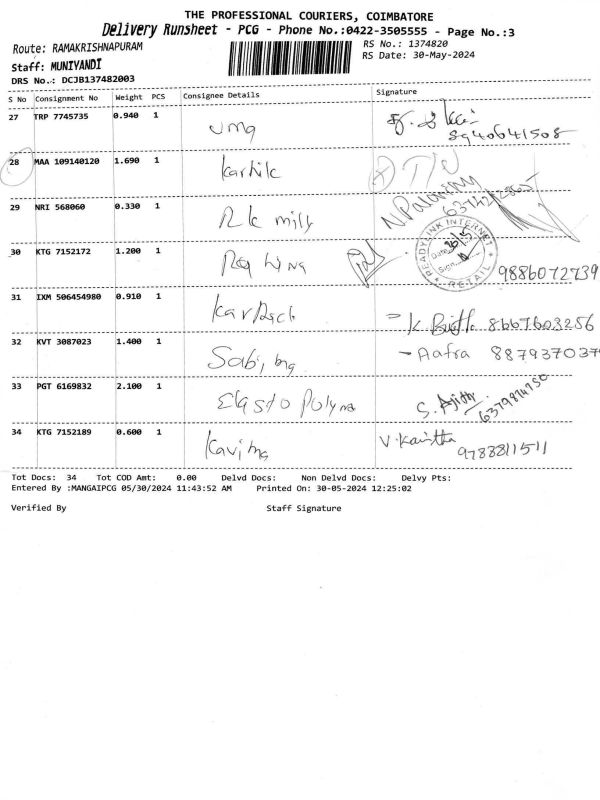 THE PROFESSIONAL COURIERS, COIMBATORE
Delivery Runsheet - PCG - Phone No.:0422-3505555 - Page No.:3
Route: RAMAKRISHNAPURAM
RS No.: 1374820
Staff: MUNIYANDI
RS Date: 30-May-2024
DRS No.: DCJB137482003
S No Consignment No Weight PCS Consignee Details Signature
27 TRP 7745735 0.940 1 uma
28 MAA 109140120 1.690 1 karthik
29 NRI 568060 0.330 1 R k mills N Palani
READYLINK INTERNET RETAIL
Date
Sign
30 KTG 7152172 1.200 1 9886072739
31 IXM 506454980 0.910 1 K 8667603256
32 KVT 3087023 1.400 1 - Aafra 887937037
33 PGT 6169832 2.100 1 Elasto Polyme S. Ajith
34 KTG 7152189 0.600 1 V. Kavitha 9788811511
Tot Docs: 34 Tot COD Amt: 0.00 Delvd Docs: Non Delvd Docs: Delvy Pts:
Entered By :MANGAIPCG 05/30/2024 11:43:52 AM Printed On: 30-05-2024 12:25:02
Verified By Staff Signature